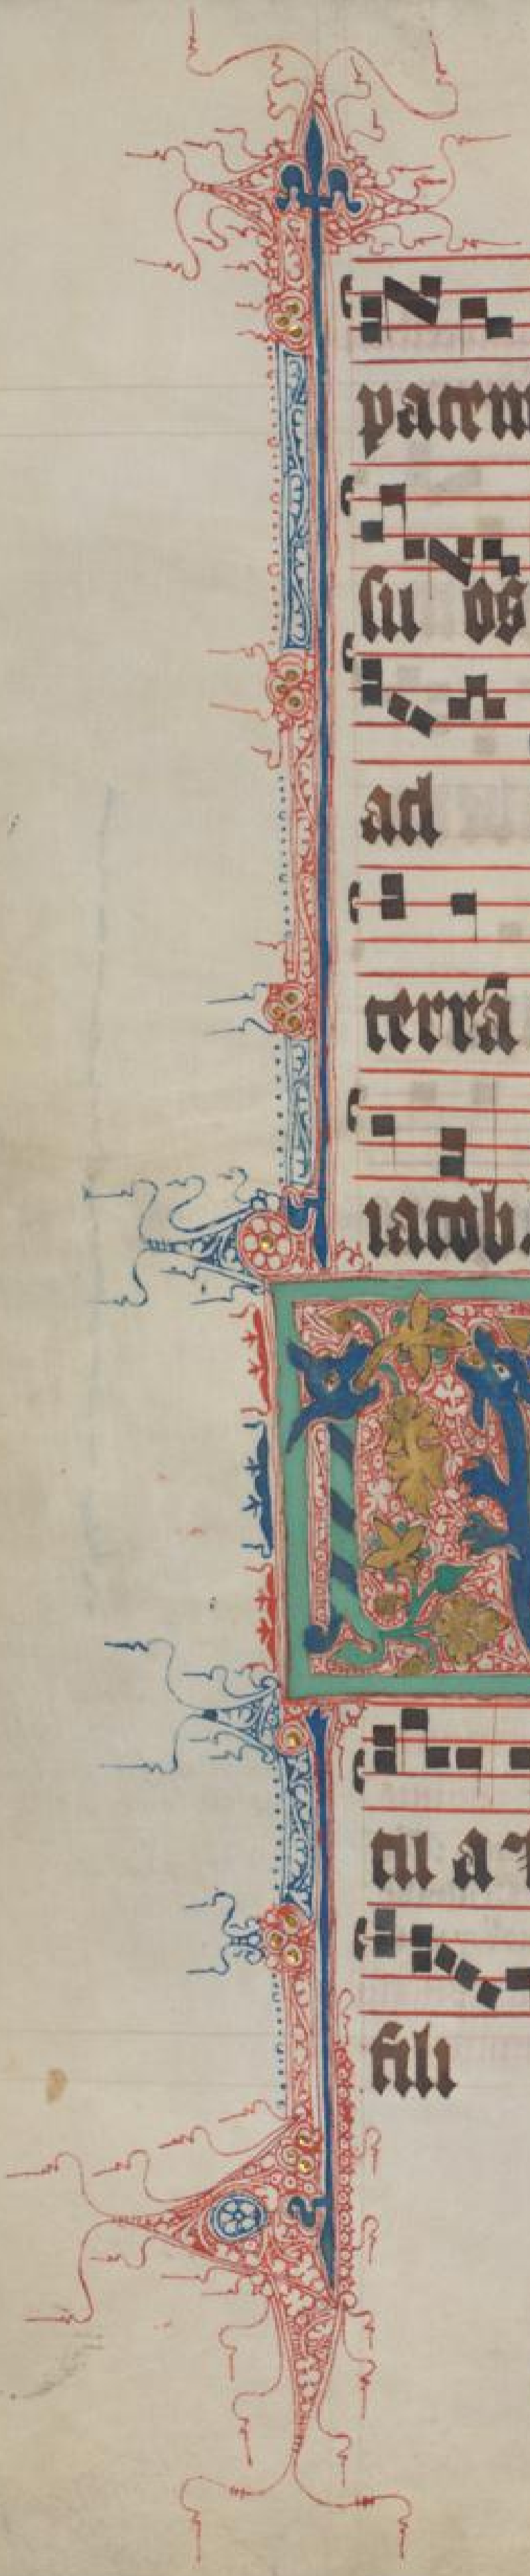 pacem
su os
ad
terrā
iacob.
tu a
fili